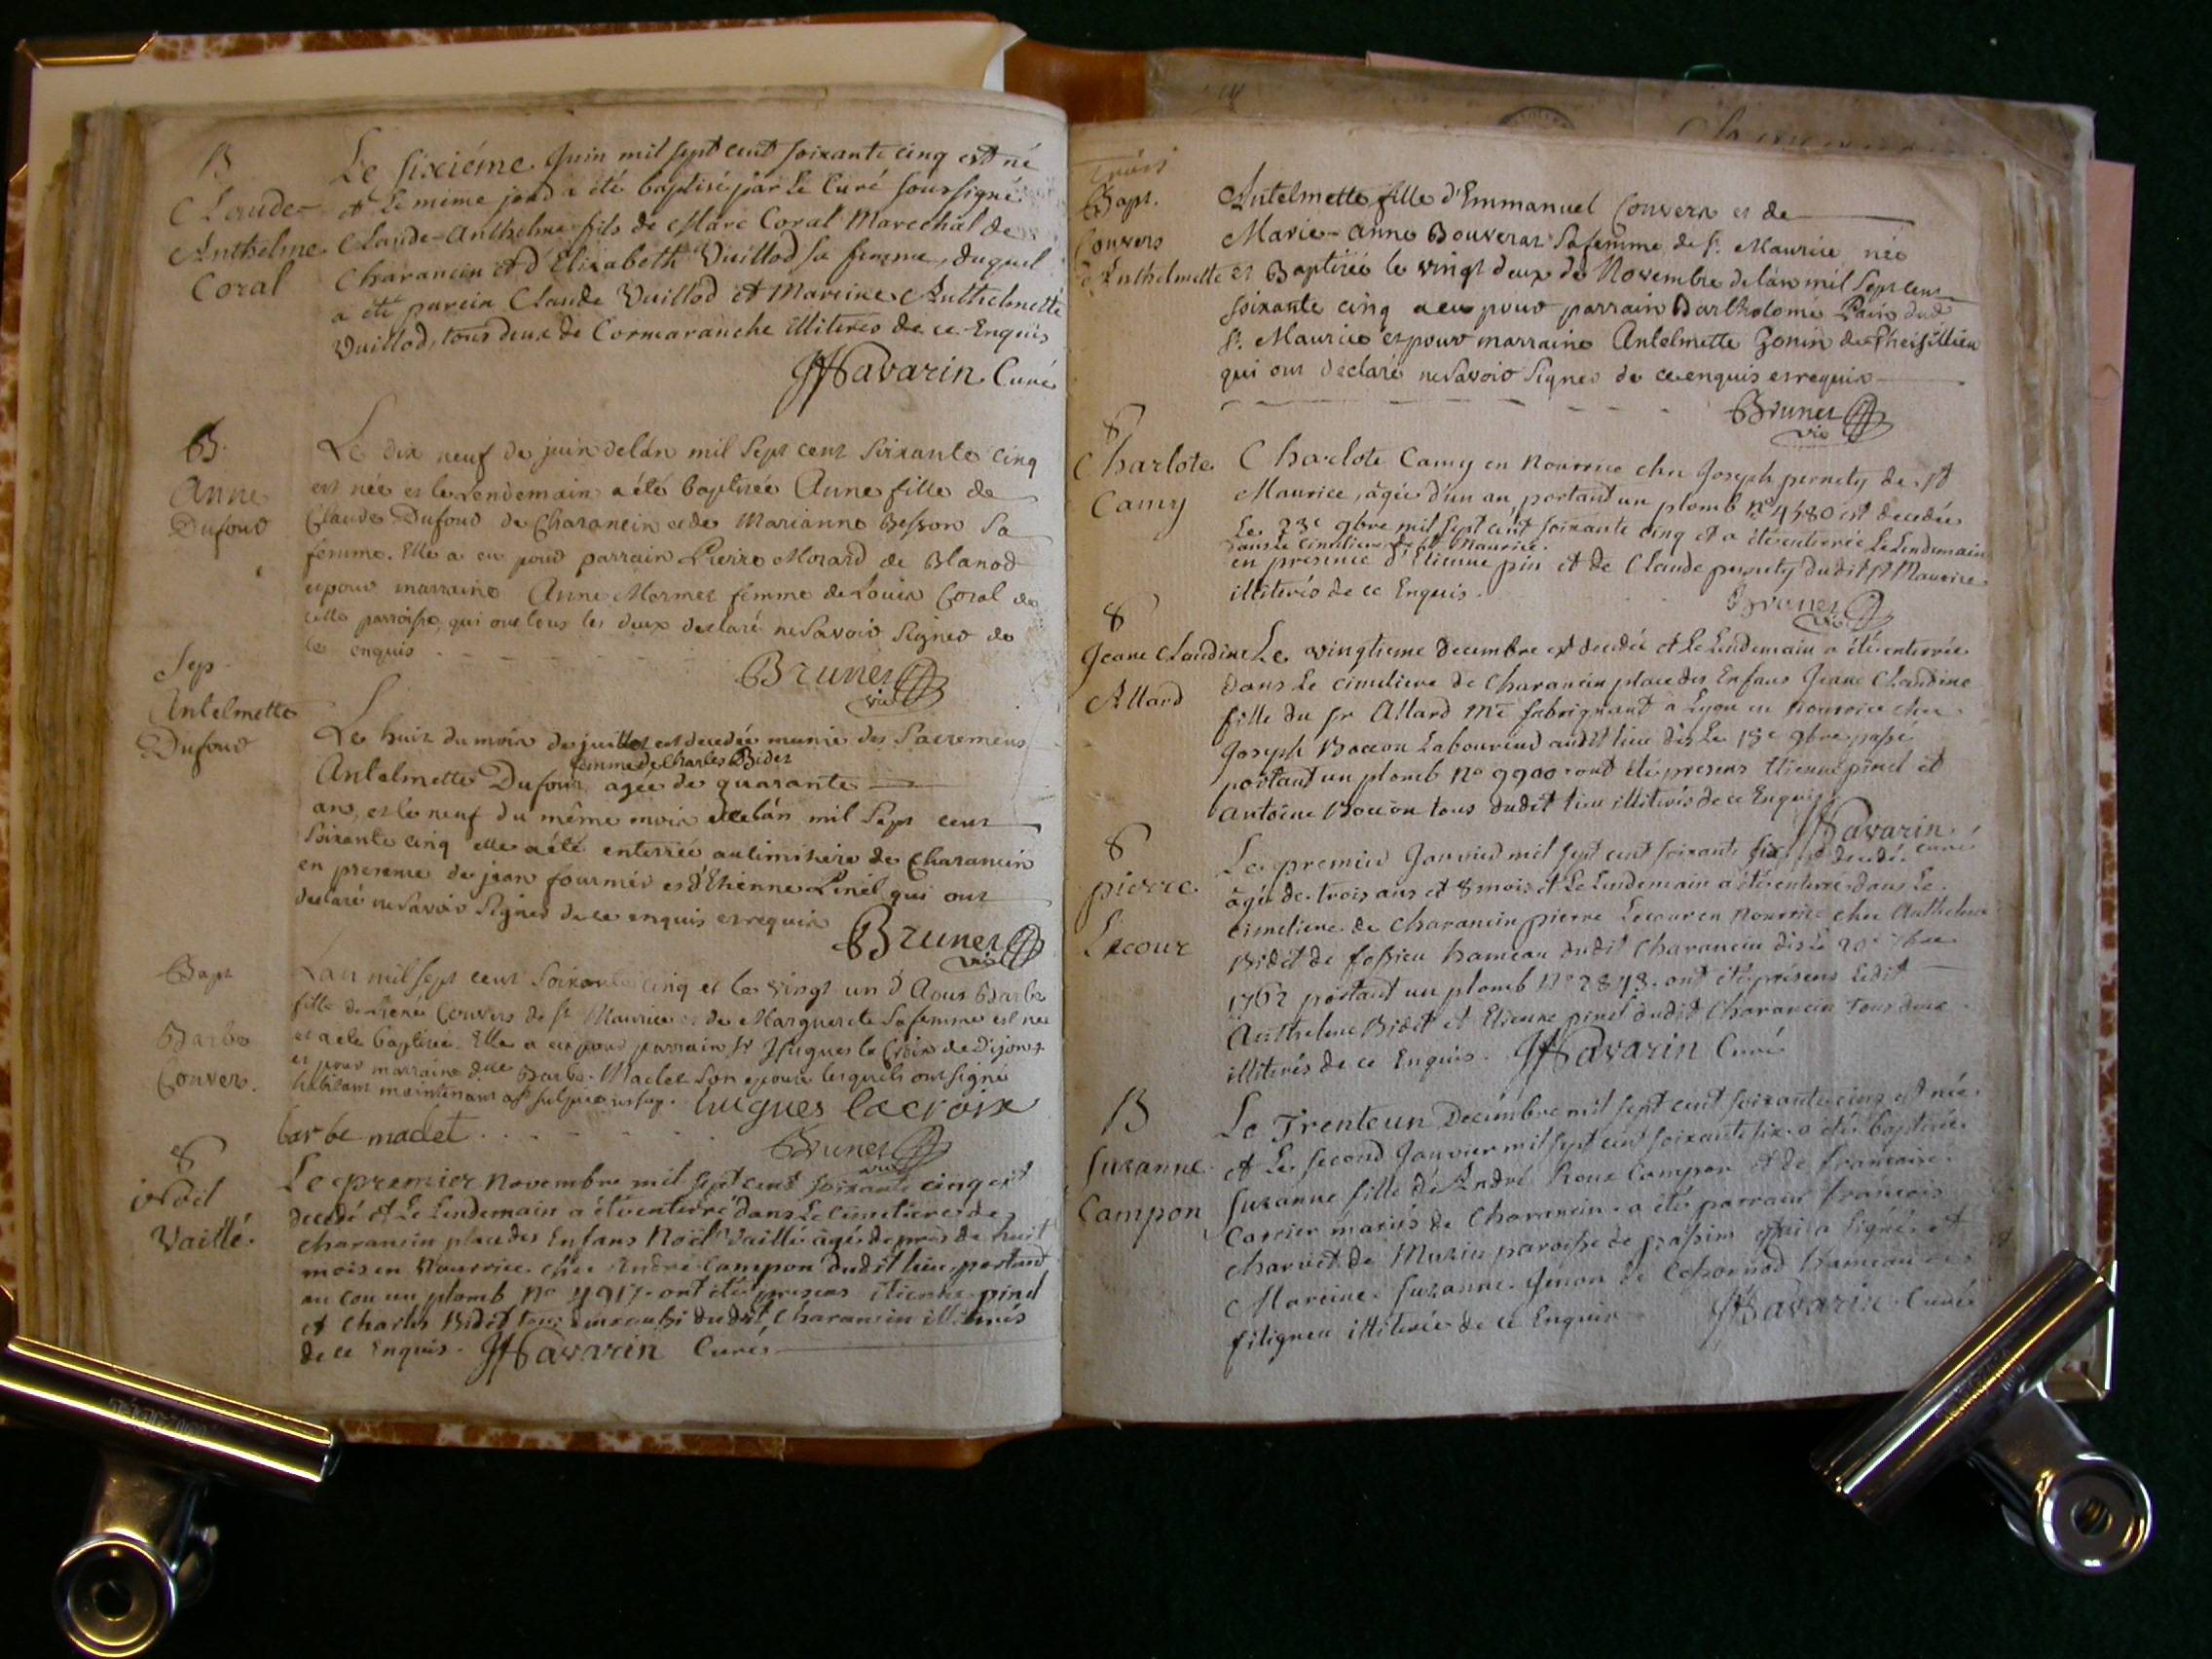 B
Claude-
Anthelme
Coral
Le sixiéme Juin mil sept cent soixante cinq est né
et le même jour a été baptisé par le Curé soussigné
Claude-Anthelme fils de Marc Coral Marechal de
Charancin et d'Elizabeth Vuillod sa femme, duquel
a été parein Claude Vuillod et Mareine Anthelmette
Vuillod, tous deux de Cormaranche illiterés de ce Enquis
Savarin Curé
B.
Anne
Dufour
Le dix neuf de juin de lan mil sept cent soixante cinq
est née et le Lendemain a été baptisée Anne fille de
Claude Dufour de Charancin et de Marianne Besson sa
femme. Elle a eu pour parrain Pierre Morard de Blanod
et pour marraine Anne Mermet femme de Louis Coral de
cette parroisse, qui ont tous les deux declaré ne savoir signer de
ce enquis
Brunet
vic
Sep
Antelmette
Dufour
Le huit du mois de juillet est decedée munie des Sacremens
femme de Charles Bidet
Antelmette Dufour agée de quarante
ans, et le neuf du même mois de lán mil Sept cent
soixante cinq elle a été enterrée au cimitiere de Charancin
en presence de jean fournier et d'Etienne Pinel qui ont
declaré ne savoir signer de ce enquis et requis
Brunet
vic
Bapt
Barbe
Convers.
Lan mil sept cent soixante cinq et le vingt un d'Aout Barbe
fille de René Convers de st Maurice et de Marguerite sa femme est née
et a été baptisée. Elle a eu pour parrain sr Hugues la Croix de Dijon
et pour marraine dlle Barbe Madet son epouse lesquels ont signé
habitant maintenant
hugues lacroix
barbe madet
Brunet
vic
8
Noël
Vaillé.
Le premier Novembre mil sept cent soixante cinq est
decedé et Le Lendemain a été enterré dans Le cimetiere de
Charancin place des Enfans Noël Vaillé agé de près de huit
mois en Nourrice chés André Campon dudit lieu, portant
au cou un plomb No 4917. ont été presens Etienne pinel
et Charles Bidet tous deux aussi dudit Charancin illiterés
de ce Enquis. Savarin Curé
Trois
Bapt.
Convers
d'Anthelmette
Antelmette fille d'Emmanuel Convers et de
Marie-anne Bouverat sa femme de st. Maurice née
et Baptisée le vingt deux de Novembre de lán mil Sept cent
soixante cinq a eu pour parrain Bartholomé Pain dud
st. Maurice et pour marraine Antelmette Gonin de Cheisillieu
qui ont declaré ne savoir signer de ce enquis et requis
Brunet
vic
8
Charlote
Camy
Charlote Camy en Nourrice chez Joseph pernety de st
Maurice, agée d'un an, portant un plomb No 4580 est decedée
Le 23e 9bre mil sept cent soixante cinq et a été enterrée Le Lendemain
dans le cimetiere de st Maurice.
en presence d'Etienne pin et de Claude pernety dudit st Maurice
illiterés de ce Enquis.
Brunet
vic
8
Jeane Claudine
Allard
Le vingtieme Decembre est decedée et Le Lendemain a été enterrée
dans Le Cimetiere de Charancin place des Enfans Jeane Claudine
fille du sr Allard Me fabriquant à Lyon en nourrice chez
Joseph Bocon Laboureur audit lieu dès Le 18e 9bre passé
portant un plomb No 9900. ont été presens Etienne pinel et
Antoine Bocon tous dudit lieu illiterés de ce Enquis.
Savarin
curé
8
pierre
Lecour
Le premier Janvier mil sept cent soixante six est decedé
âgé de trois ans et 8 mois et Le Lendemain a été enterré dans Le
cimetiere de Charancin pierre Lecour en Nourrice chez Anthelme
Bidet de fossieu hameau dudit Charancin dès le 20e 7bre
1762 portant un plomb No 2873. ont été présens Ledit
Anthelme Bidet et Etienne pinel dudit Charancin tous deux
illiterés de ce Enquis. Savarin Curé
B
Suzanne
Campon
Le Trenteun Decembre mil sept cent soixante cinq est née
et Le second Janvier mil sept cent soixante six a été baptisée
Suzanne fille de André Roux Campon et de francoise
Carrier mariés de Charancin. a été parrain francois
Charvet de Muzin paroisse de passim qui a signé. et
Mareine Suzanne Genon de hameau de
fitigneu illiterée de ce Enquis
Savarin Curé